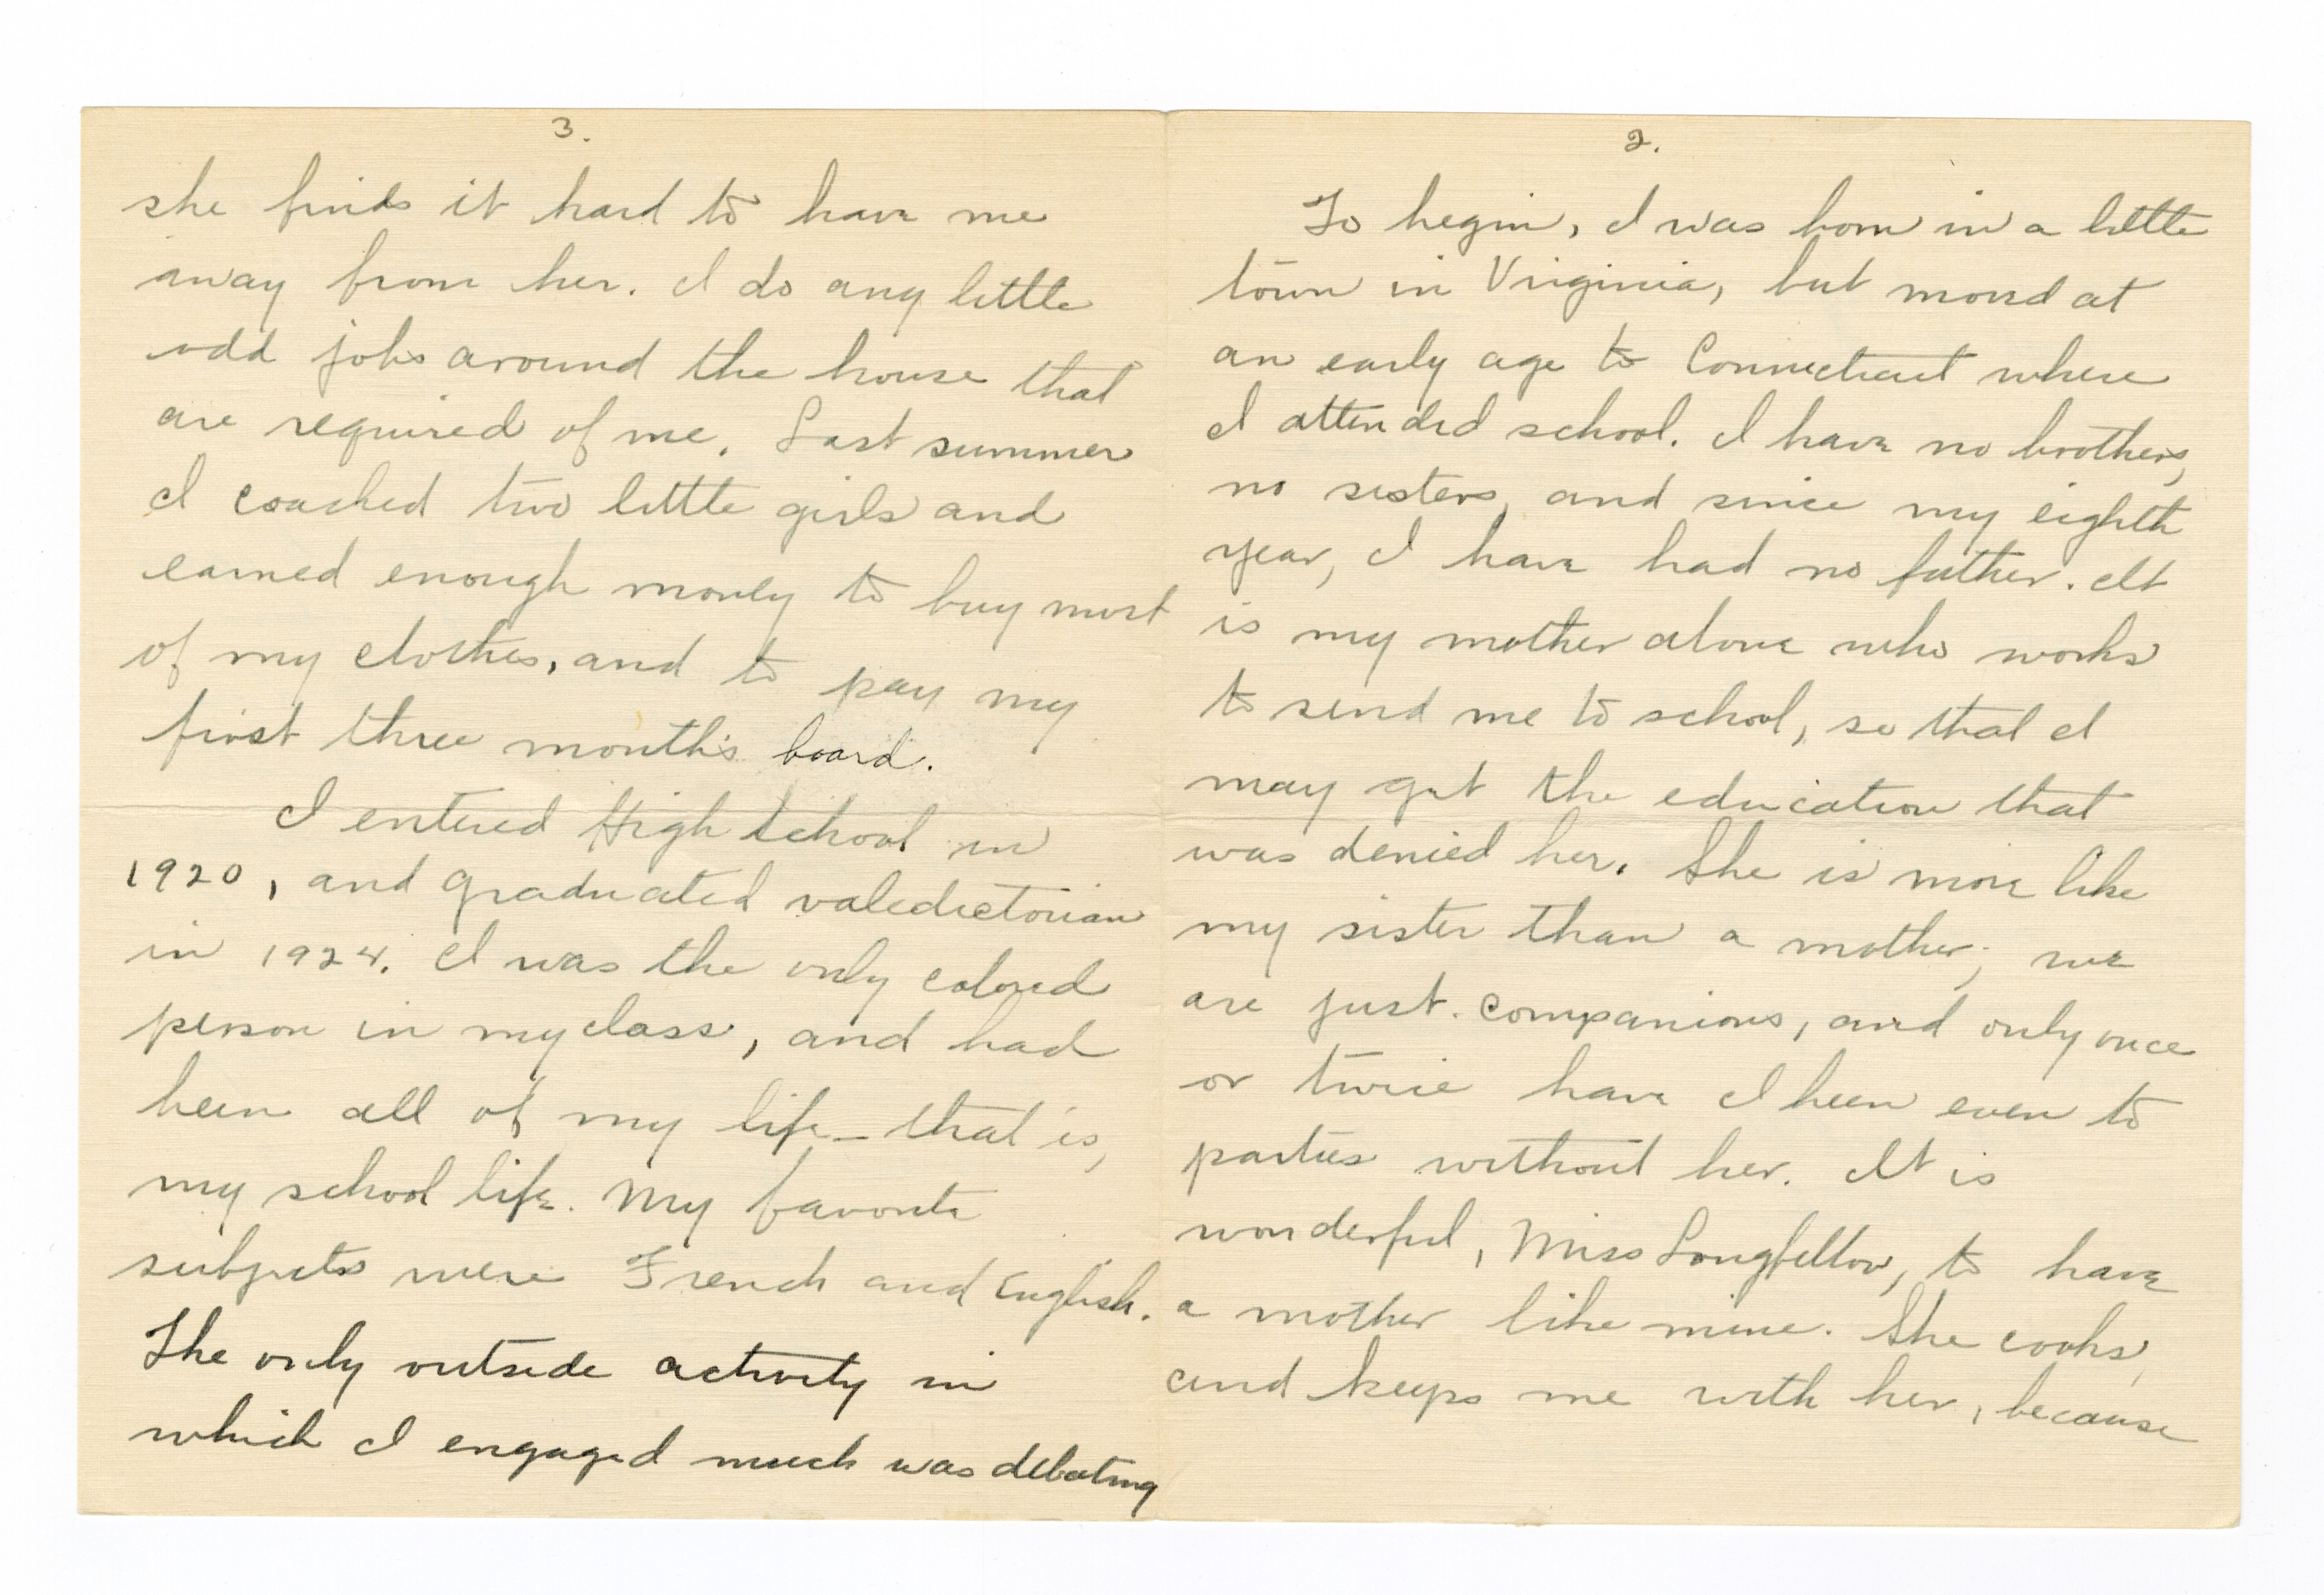 2.
To begin, I was born in a little
town in Virginia, but moved at
an early age to Connecticut where
I attended school. I have no brothers,
no sisters, and since my eighth
year, I have had no father. It
is my mother alone who works
to send me to school, so that I
may get the education that
was denied her. She is more like
my sister than a mother; we
are just companions, and only once
or twice have I been even to
parties without her. It is
wonderful, Miss Longfellow, to have
a mother like mine. She cooks,
and keeps me with her, because
3.
she finds it hard to have me
away from her. I do any little
odd jobs around the house that
are required of me. Last summer
I coached two little girls and
earned enough money to buy most
of my clothes, and to pay my
first three month's board.
I entered High School in
1920, and graduated valedictorian
in 1924. I was the only colored
person in my class, and had
been all of my life - that is,
my school life. My favorite
subjects were French and English.
The only outside activity in
which I engaged much was debating